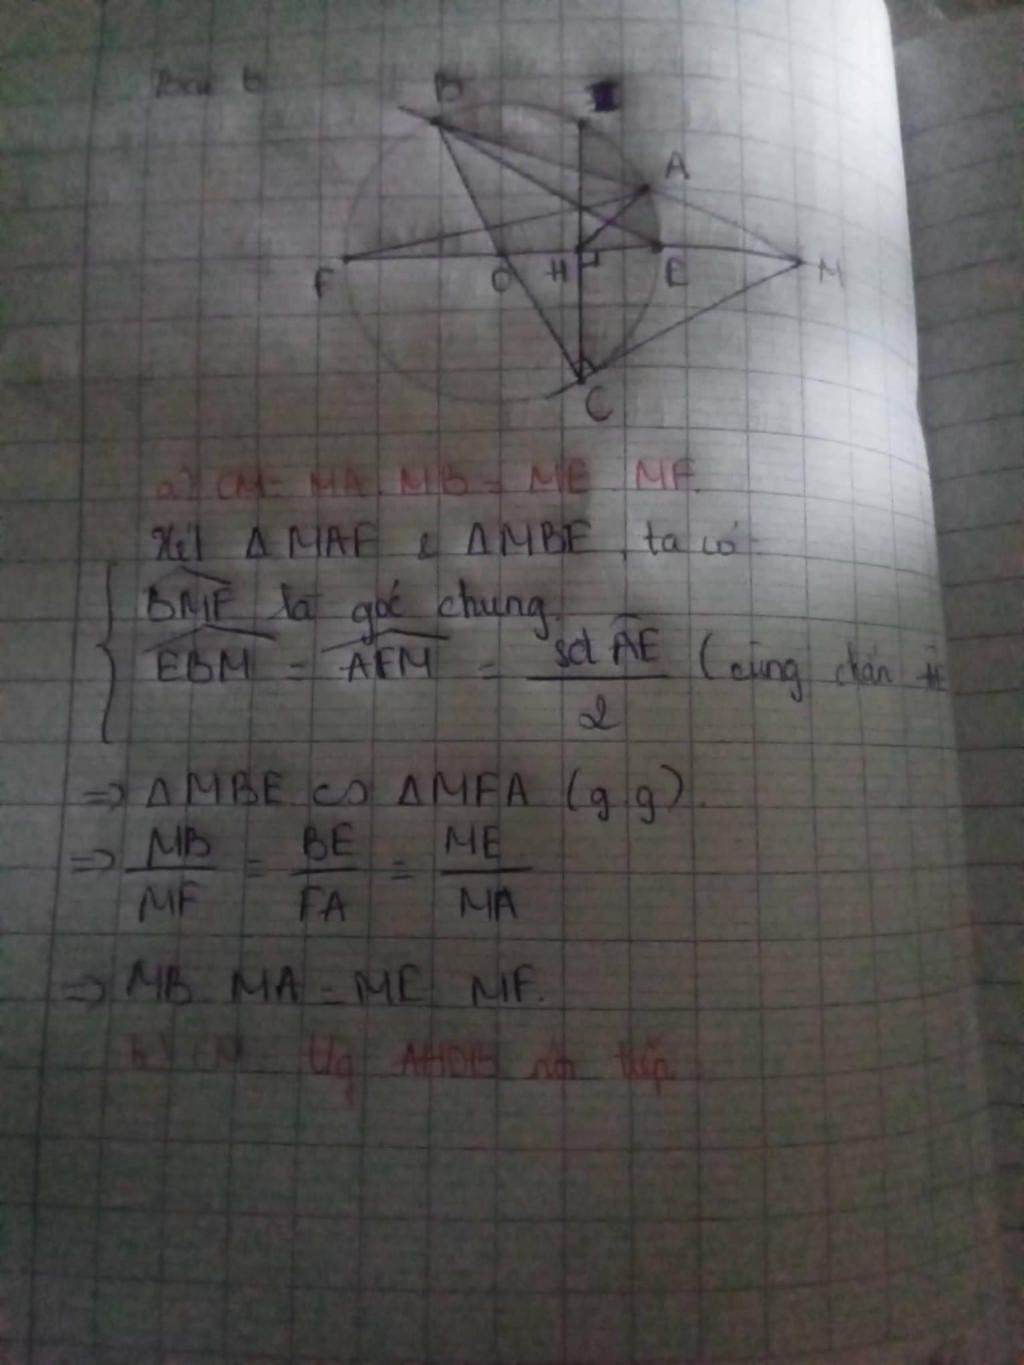 Bài 6
B
A
F
O
H
E
M
C
a) CM: MA . MB = ME . MF.
Xét Δ MAF & Δ MBE, ta có:
BMF là góc chung.
EBM = AFM = sđ AE / 2 (cùng chắn
=> Δ MBE ∽ Δ MFA (g.g).
=> MB/MF = BE/FA = ME/MA
=> MB . MA = ME . MF.
b) CM: t/g AHOB nội tiếp